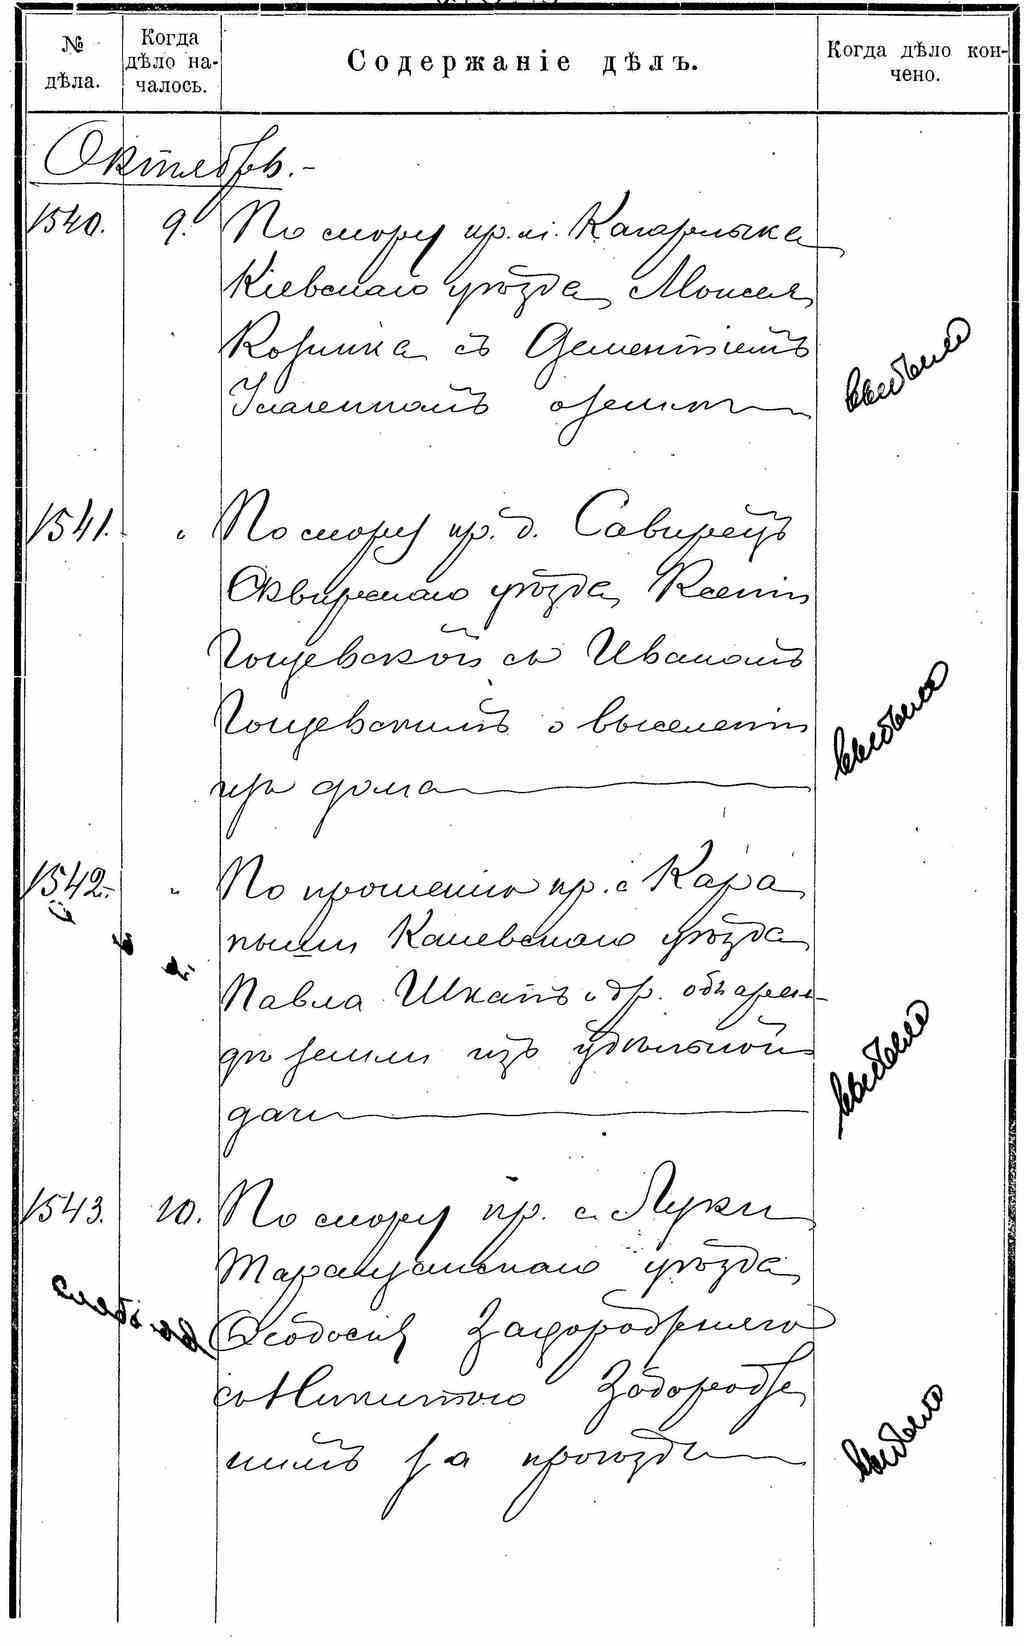 № дѣла.
Когда дѣло на-
чалось.
Содержаніе дѣлъ.
Когда дѣло кон-
чено.
Октябрь.-
1540. 9. По спору кр. м. Кагарлыка
Кіевскаго уѣзда Моисея
съ Дементіемъ
о землѣ
выбыло
1541. " По спору кр. д. Савирецъ
Сквирскаго уѣзда Ксеніи
Гощевской съ Иваномъ
Гощевскимъ о выселеніи
изъ дома
выбыло
1542.- " По прошенію кр. с. Кара
пыши Каневскаго уѣзда
Павла и др. объ арен-
дѣ земли изъ удѣльной
дачи
выбыло
1543. 10. По спору кр. с. Луки
Таращанскаго уѣзда
Ѳеодосія Загороднего
съ Никитою
нимъ за проѣздъ
выбыло